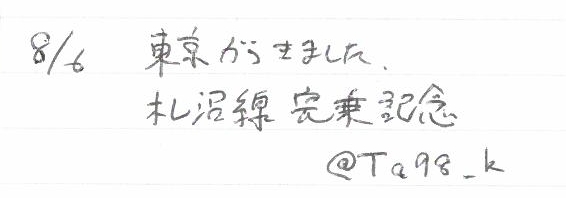 8/6 東京から来ました.
札沼線 完乗記念
@Ta98_k